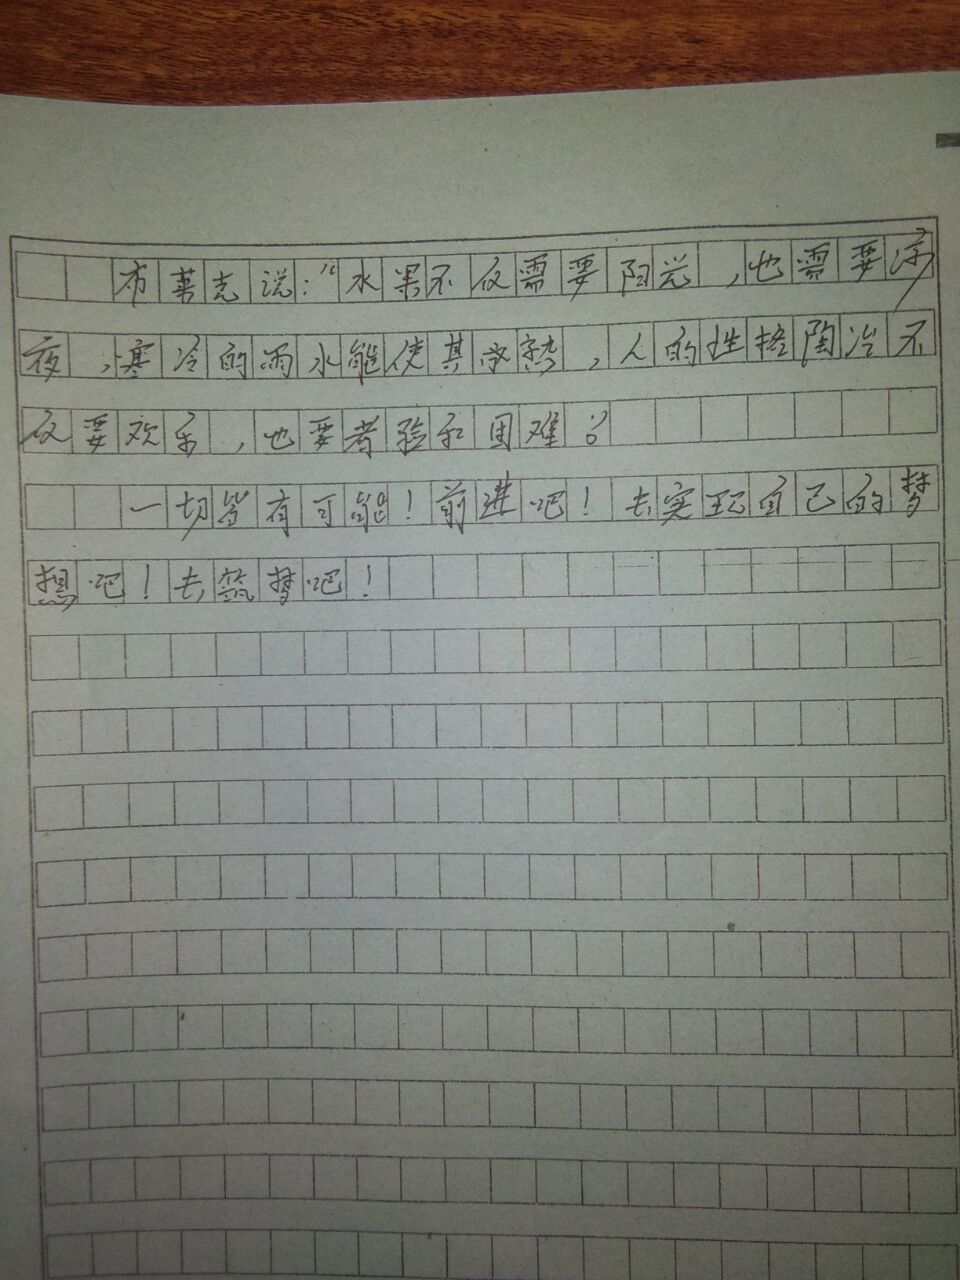 布莱克说:“水果不仅需要阳光,也需要凉
夜,寒冷的雨水能使其成熟,人的性格陶冶不
仅要欢乐,也要考验和困难。”
一切皆有可能!前进吧!去实现自己的梦
想吧!去筑梦吧!